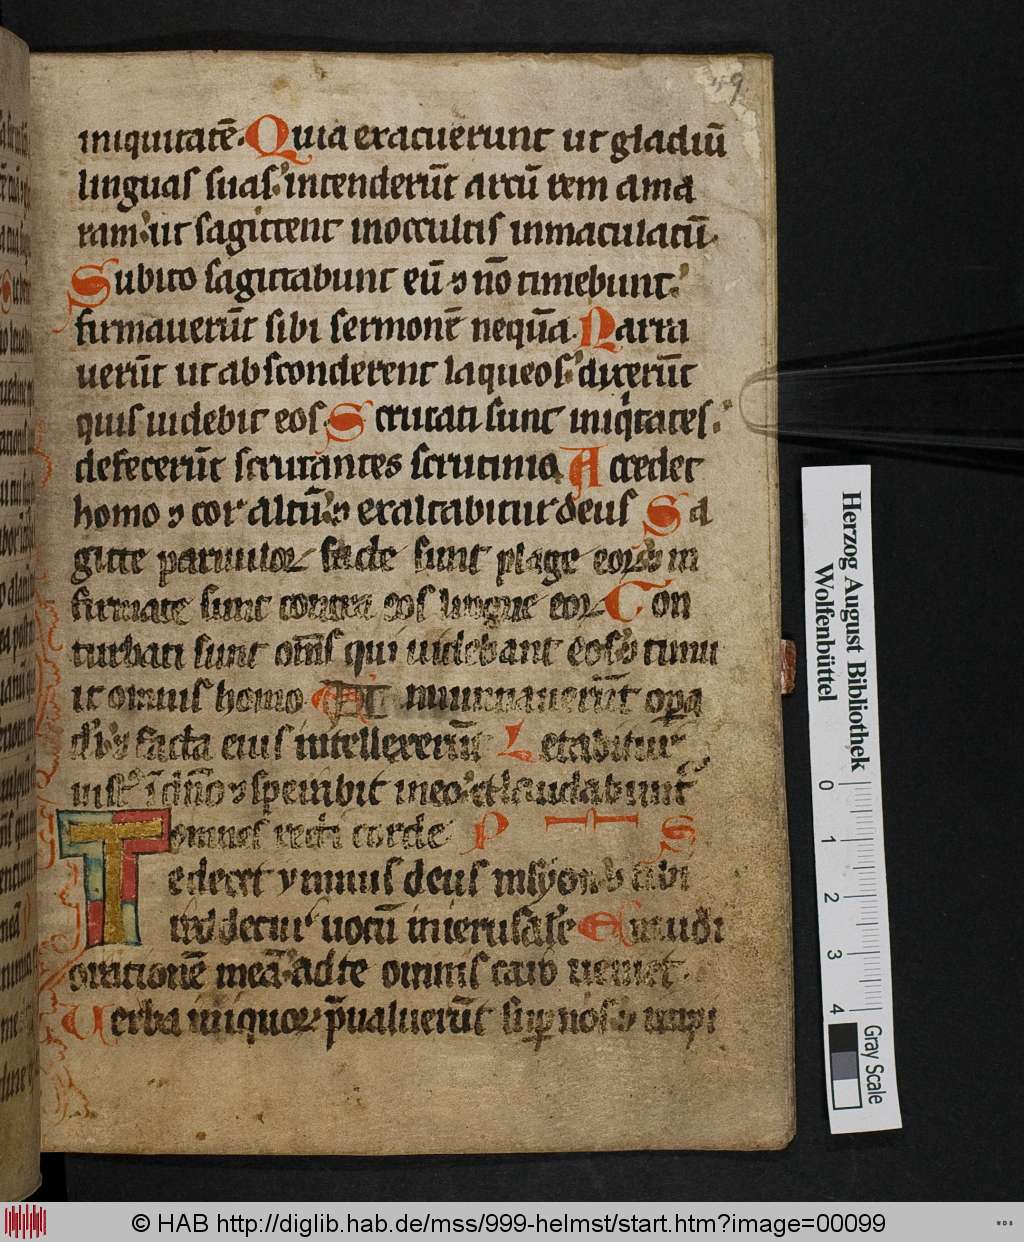 49
iniquitatē. Quia exacuerunt ut gladiū
linguas suas: intenderūt arcū rem ama
ram: ut sagittent inoccultis inmaculatū.
Subito sagittabunt eū ⁊ nō timebunt:
firmauerūt sibi sermonē nequā. Narra
uerūt ut absconderent laqueos: dixerūt
quis uidebit eos. Scrutati sunt iniqͥtates:
defecerūt scrutantes scrutinio. Accedet
homo ⁊ cor altū: ⁊ exaltabitur deus Sa
gitte paruuloꝝ facte sunt plage eoꝝ: ⁊ in
firmate sunt contra eos lingue eoꝝ. Con
turbati sunt om̄s qui uidebant eos: ⁊ timu
it omnis homo. Et nnuntiauerūt opa
di: ⁊ facta eius intellexerūt Letabitur
iust᷒ ī dn̄o ⁊ sperabit ineo: et laudabunt᷑
omnes recti corde P S
Te decet ymnus deus insyon: ⁊ tibi
reddetur uotū inierusalē Exaudi
orationē meā: ad te omnis caro ueniet.
Uerba iniquoꝝ p̄ualuerūt suꝑ nos: ⁊ impi
Herzog August Bibliothek
Wolfenbüttel
0 1 2 3 4
Gray Scale
© HAB http://diglib.hab.de/mss/999-helmst/start.htm?image=00099